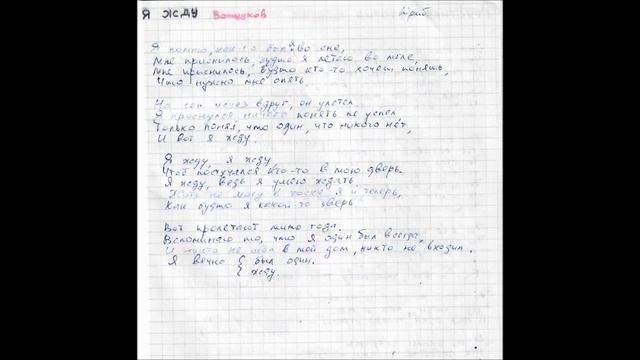 Я ЖДУ Ватуков Приб.
Я помню, как-то был я во сне,
Мне приснилось, будто я летаю во мгле,
Мне приснилось, будто кто-то хочет понять,
Что нужно мне опять.
Но сон исчез вдруг, он улетел.
Я проснулся, ничего понять не успел,
Только понял, что один, что никого нет,
И вот я жду.
Я жду, я жду,
Чтоб постучался кто-то в мою дверь.
Я жду, ведь я умею ждать.
Жить не могу в тоске я и теперь,
Как будто я какой-то зверь.
Вот пролетают мимо года.
Вспоминаю то, что я один был всегда.
И никто не шёл в мой дом, никто не входил.
Я вечно { был один.
{ жду.